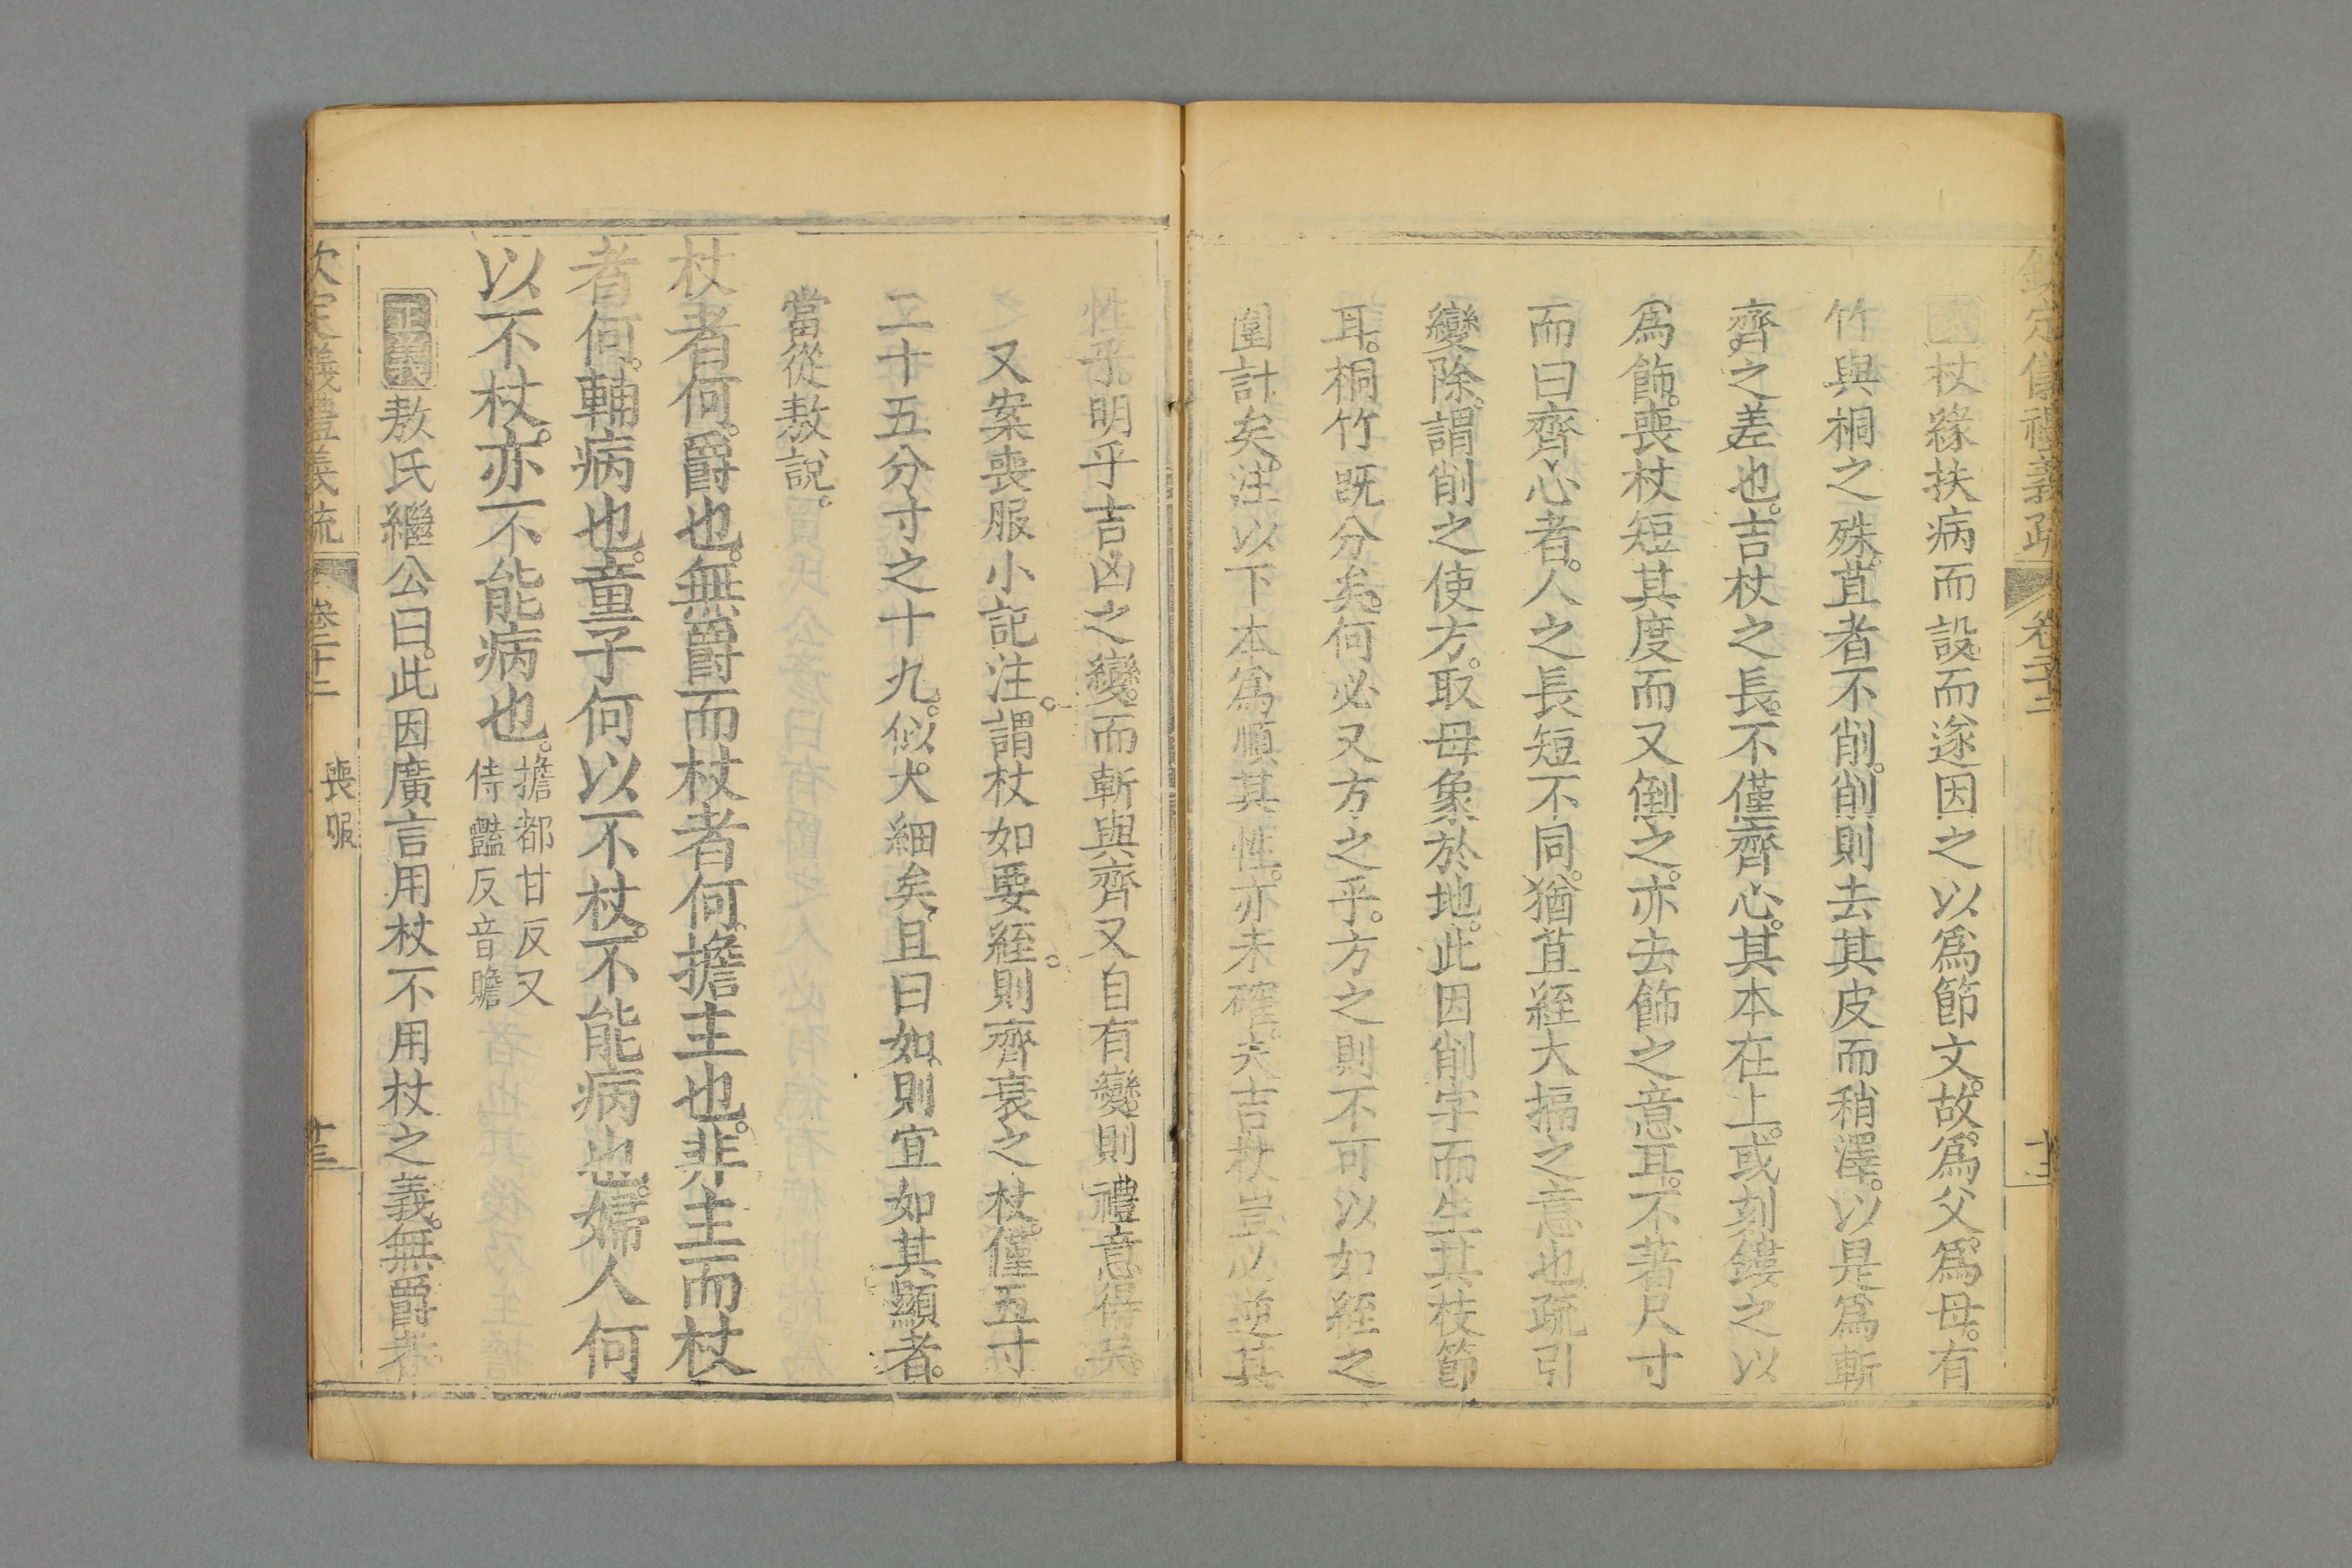 欽定儀禮義疏 卷二十二 十二
杖緣扶病而設而遂因之以爲節文。故爲父。爲母。有
竹與桐之殊。苴者不削。削則去其皮而稍澤。以是爲斬
齊之差也。吉杖之長。不僅齊心。其本在上。或刻鏤之以
爲飾。喪杖短其度而又倒之。亦去飾之意耳。不著尺寸
而曰齊心者。人之長短不同。猶苴絰大搹之意也疏引
變除。謂削之使方。取母象於地。此因削字而生其杖節
耳。桐竹旣分矣。何必又方之乎。方之則不可以如絰之
圍計矣。注以下本爲順其性。亦未確。夫吉杖豈必逆其
性乎。明乎吉凶之變。而斬與齊又自有變。則禮意得矣。
又案喪服小記注。謂杖如要絰。則齊衰之杖。僅五寸
二十五分寸之十九。似大細矣。且曰如。則宜如其顯者。
當從敖說。
杖者何。爵也。無爵而杖者何。擔主也。非主而杖
者何。輔病也。童子何以不杖。不能病也。婦人何
以不杖。亦不能病也。擔都甘反又
侍豔反音贍
正義 敖氏繼公曰。此因廣言用杖不用杖之義。無爵者
欽定儀禮義疏 卷二十二 喪服 十三